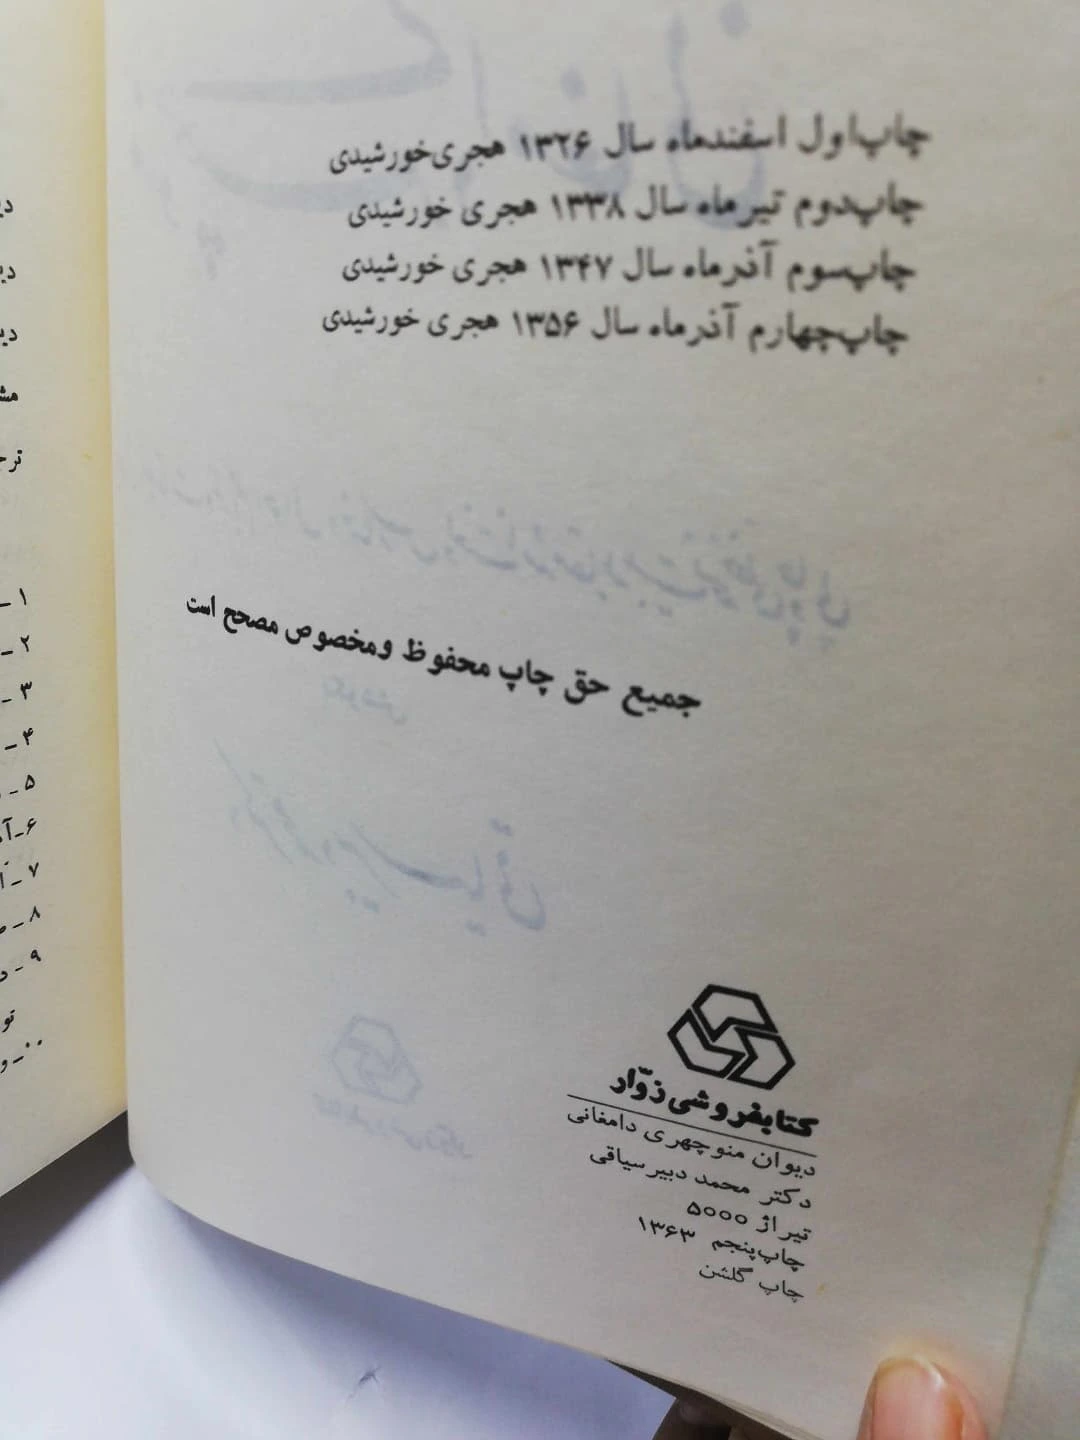 چاپ‌اول اسفندماه سال ۱۳۲۶ هجری‌خورشیدی
چاپ‌دوم تیرماه سال ۱۳۳۸ هجری خورشیدی
چاپ‌سوم آذرماه سال ۱۳۴۷ هجری خورشیدی
چاپ‌چهارم آذرماه سال ۱۳۵۶ هجری خورشیدی
جمیع حق چاپ محفوظ ومخصوص مصحح است
کتابفروشی زوّار
دیوان منوچهری دامغانی
دکتر محمد دبیرسیاقی
تیراژ ۵۰۰۰
چاپ‌پنجم ۱۳۶۳
چاپ گلشن
۱ –
۲ –
۳ –
۴ –
۵ –
۶–
۷ –
۸ –
۹ –